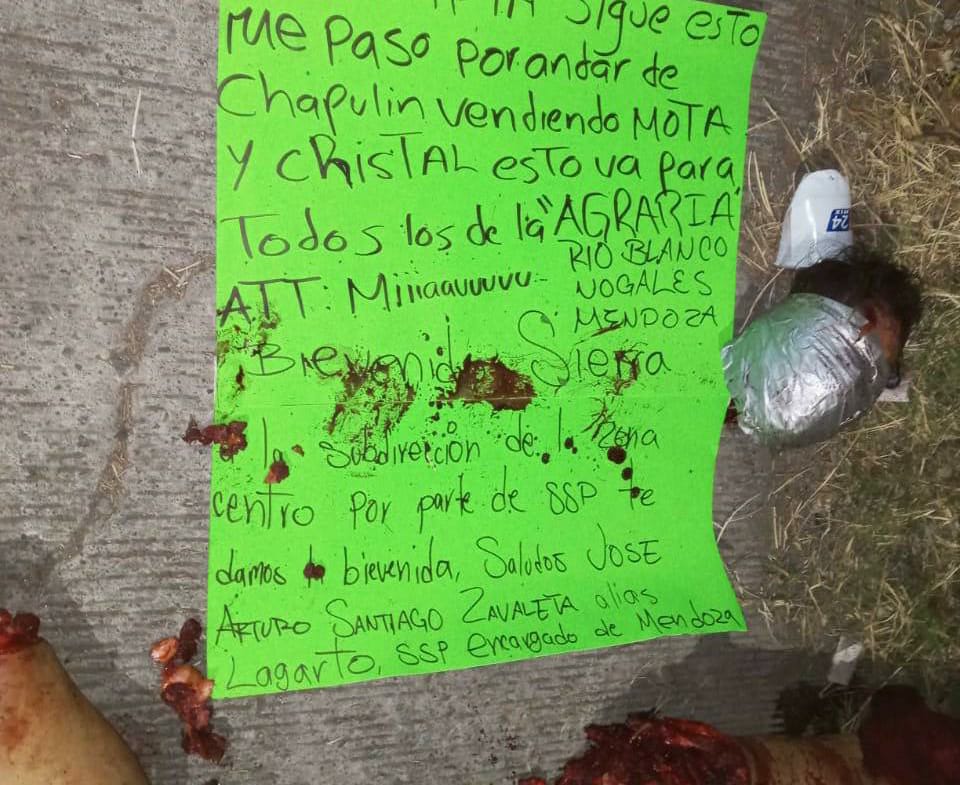 Sigue esto
Me Paso por andar de
Chapulin vendiendo MOTA
y CRISTAL esto va para
Todos los de la "AGRARIA
RIO BLANCO
ATT: Miiiaauuuuu
NOGALES
MENDOZA
"Bievenido Sierra
a la subdirección de la zona
centro por parte de SSP te
damos la bievenida, Saludos JOSE
ARTURO SANTIAGO ZAVALETA alias
Lagarto, SSP encargado de Mendoza
24